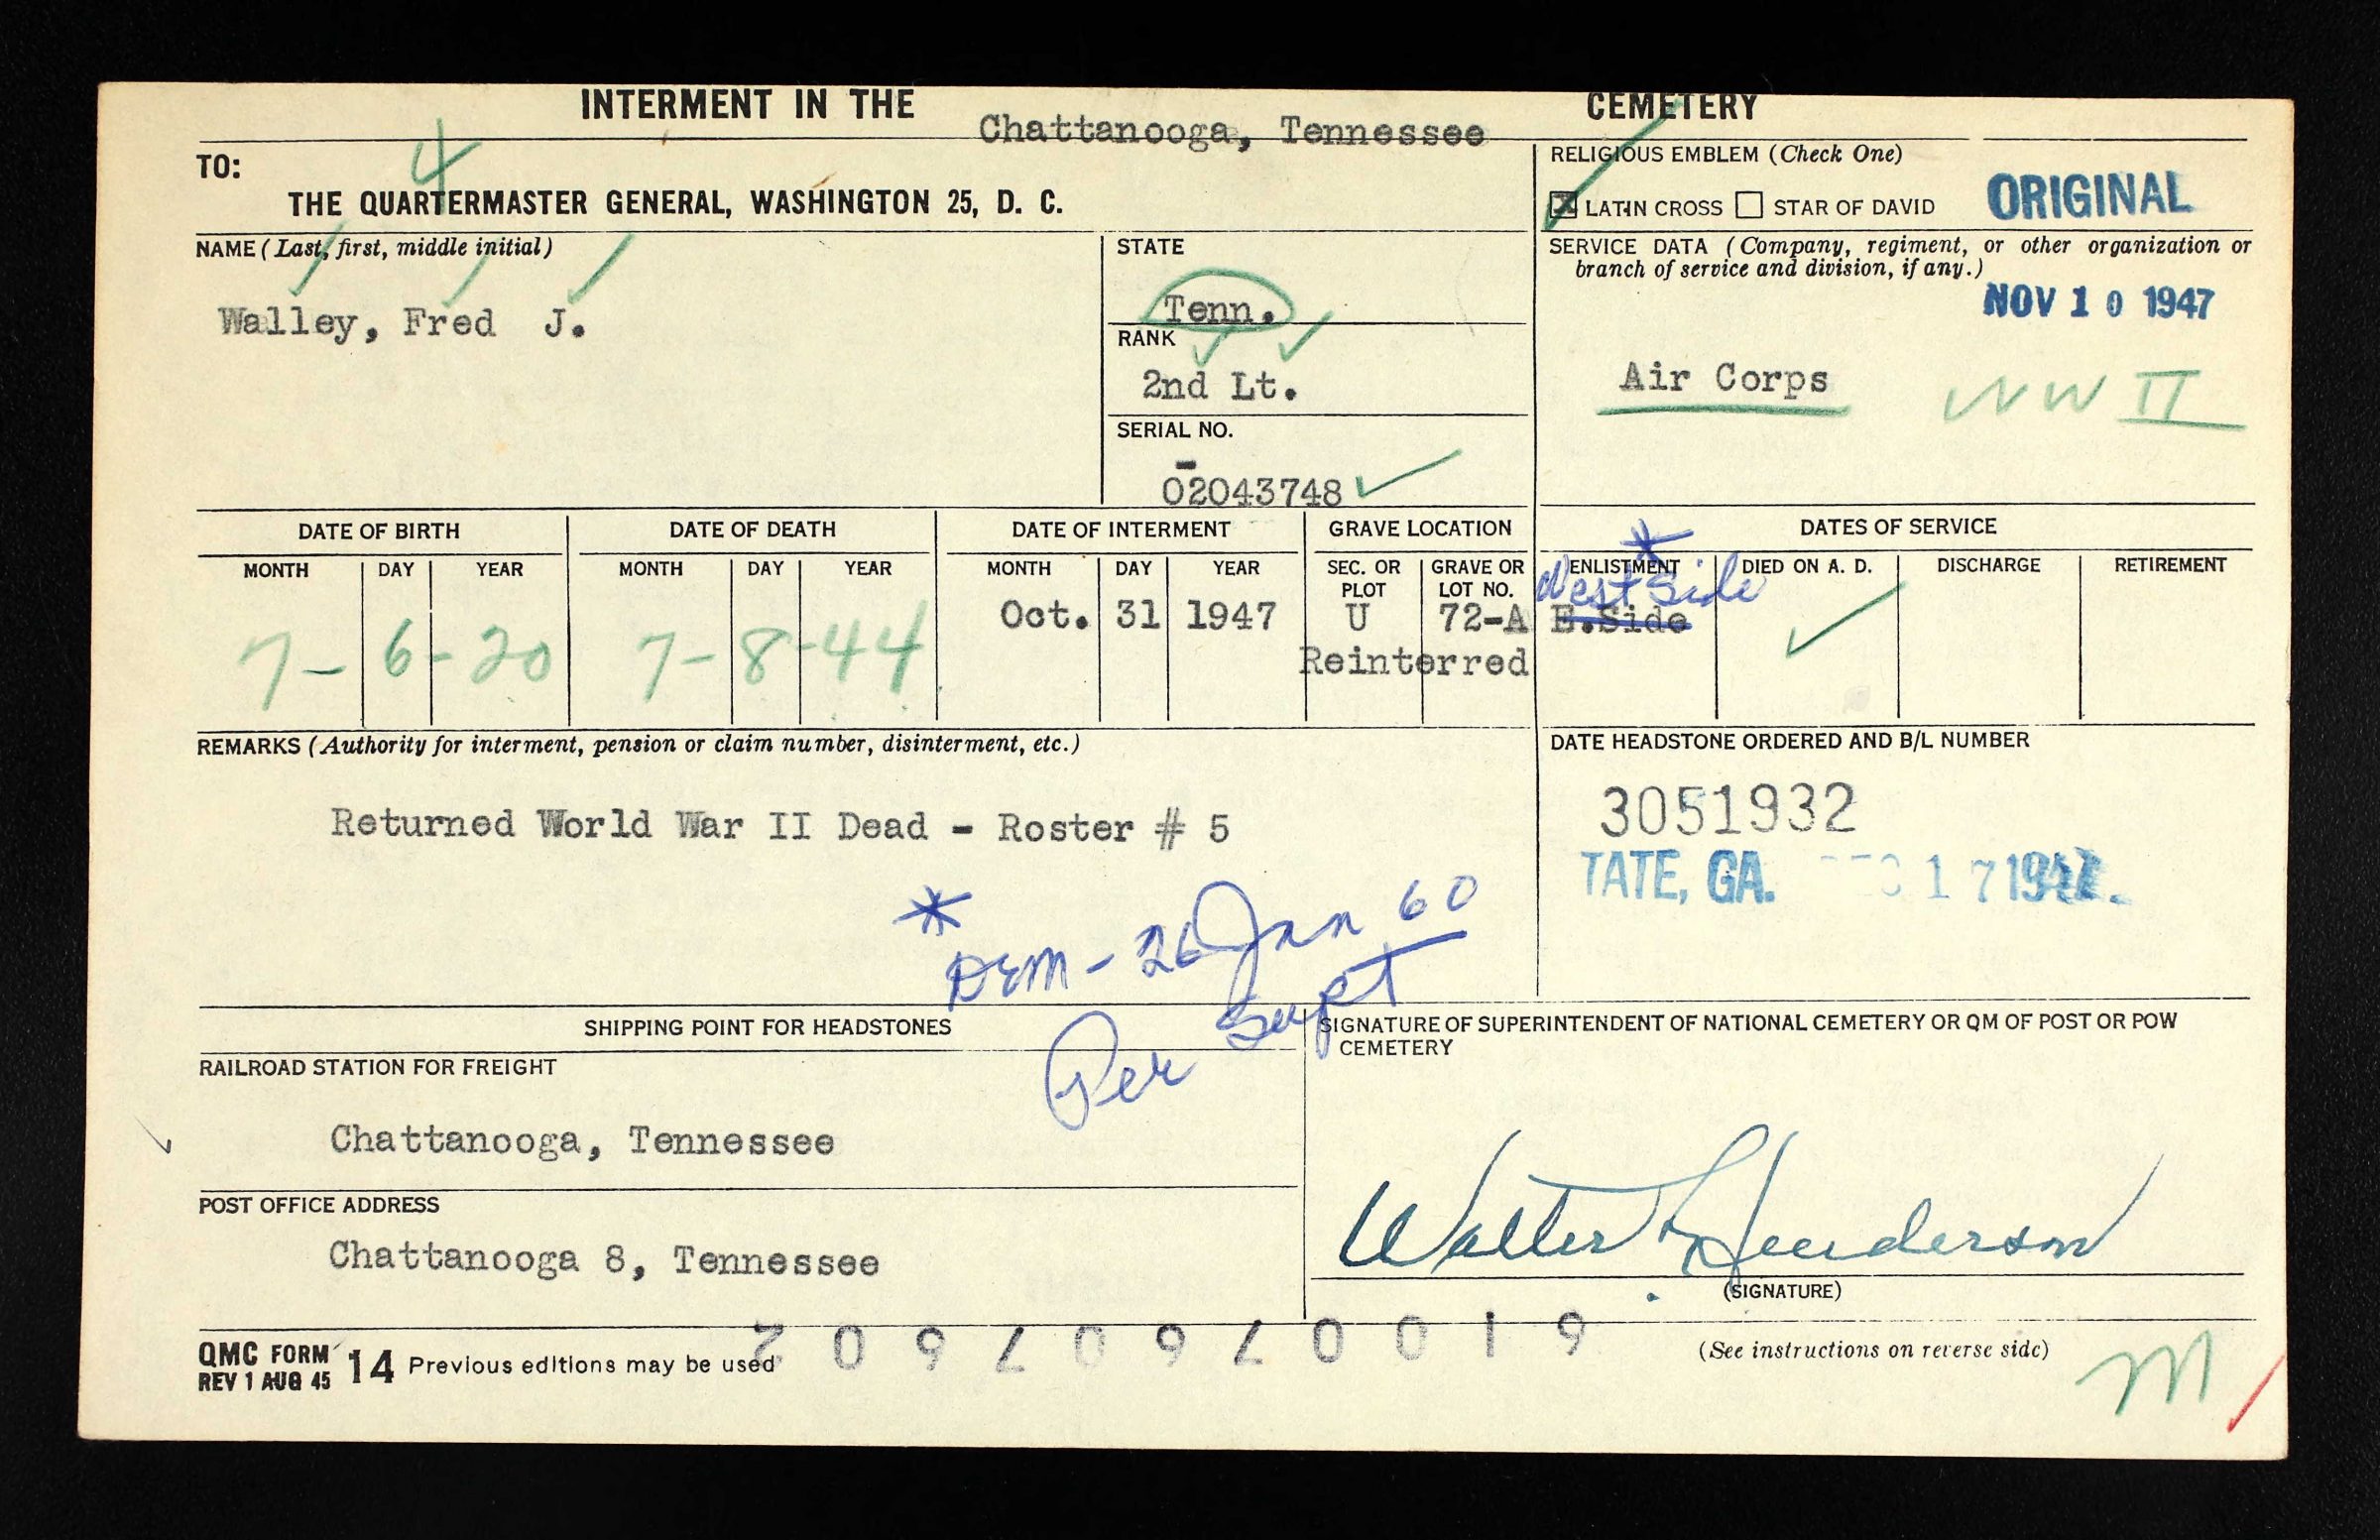 INTERMENT IN THE Chattanooga, Tennessee CEMETERY
4
TO:
THE QUARTERMASTER GENERAL, WASHINGTON 25, D. C.
RELIGIOUS EMBLEM (Check One)
X LATIN CROSS STAR OF DAVID
ORIGINAL
NAME (Last, first, middle initial)
Walley, Fred J.
STATE
Tenn.
RANK
2nd Lt.
SERIAL NO.
02043748
SERVICE DATA (Company, regiment, or other organization or
branch of service and division, if any.)
NOV 10 1947
Air Corps WW II
DATE OF BIRTH DATE OF DEATH DATE OF INTERMENT GRAVE LOCATION DATES OF SERVICE
MONTH DAY YEAR MONTH DAY YEAR MONTH DAY YEAR SEC. OR PLOT GRAVE OR LOT NO. ENLISTMENT DIED ON A. D. DISCHARGE RETIREMENT
* West Side
7-6-20 7-8-44 Oct. 31 1947 U 72-A E.Side
Reinterred
REMARKS (Authority for interment, pension or claim number, disinterment, etc.)
Returned World War II Dead - Roster # 5
* - 26 Jan 60
Per Supt
DATE HEADSTONE ORDERED AND B/L NUMBER
3051932
TATE, GA. 17 194
SHIPPING POINT FOR HEADSTONES
RAILROAD STATION FOR FREIGHT
Chattanooga, Tennessee
POST OFFICE ADDRESS
Chattanooga 8, Tennessee
SIGNATURE OF SUPERINTENDENT OF NATIONAL CEMETERY OR QM OF POST OR POW
CEMETERY
Walter L Henderson
(SIGNATURE)
QMC FORM 14 Previous editions may be used
REV 1 AUG 45
(See instructions on reverse side)
M